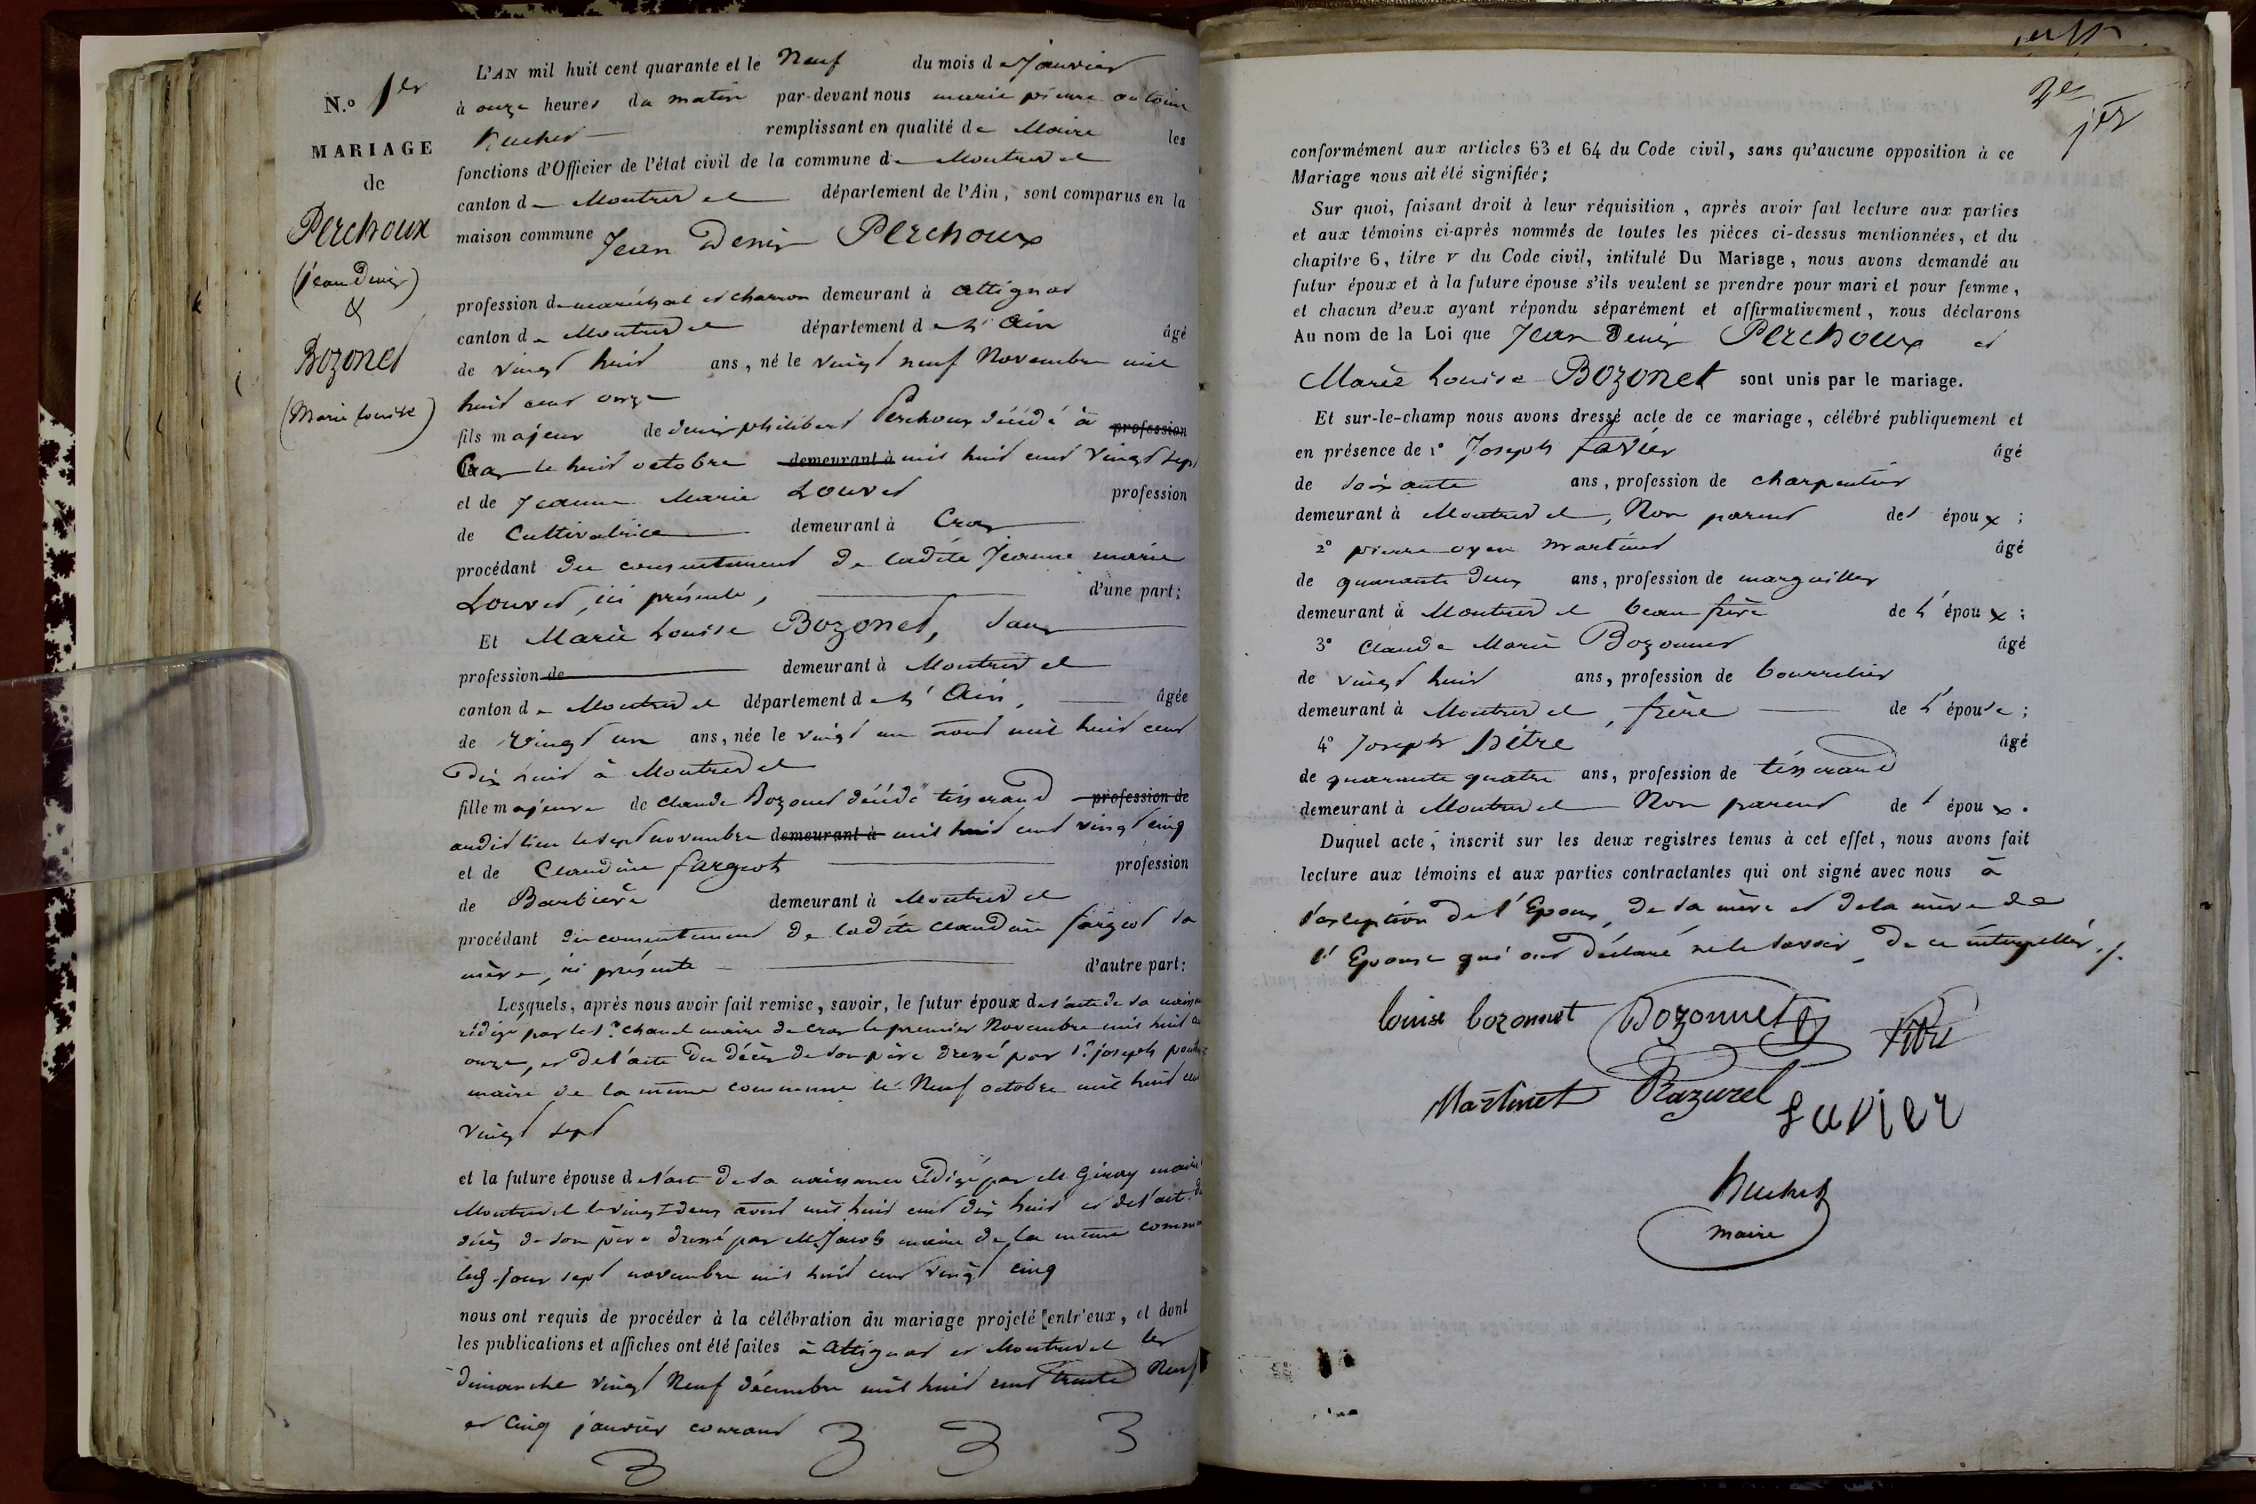 N.º 1er
MARIAGE
de
Perchoux
(jean Denis)
&
Bozonet
(Marie Louise)
L'AN mil huit cent quarante et le Neuf du mois de Janvier
à onze heures du matin par-devant nous marie pierre antoine
Huchet remplissant en qualité de Maire les
fonctions d'Officier de l'état civil de la commune de Montrevel
canton de Montrevel département de l'Ain, sont comparus en la
maison commune Jean Denis Perchoux
profession de maréchal et charron demeurant à attignat
canton de Montrevel département de l'Ain âgé
de vingt huit ans, né le vingt neuf Novembre mil
huit cent onze
fils majeur de denis philibert Perchoux décédé à profession
Cras le huit octobre demeurant à mil huit cent vingt sept
et de Jeanne Marie Louvet profession
de Cultivatrice demeurant à Cras
procédant du consentement de ladite Jeanne marie
Louvet, ici présente, d'une part;
Et Marie Louise Bozonet, sans
profession de demeurant à Montrevel
canton de Montrevel département de l'Ain, âgée
de vingt un ans, née le vingt un aout mil huit cent
dix huit à Montrevel
fille majeure de claude Bozonet décédé tisserand profession de
audit lieu le sept novembre demeurant à mil huit cent vingt cinq
et de Claudine fargeot profession
de Barbière demeurant à Montrevel
procédant du consentement de ladite claudine fargeot sa
mère, ici présente d'autre part:
Lesquels, après nous avoir fait remise, savoir, le futur époux de l'acte de sa
rédigé par le Sr. maire de cras le premier Novembre mil huit
onze, et de l'acte du décès de son père dressé par Sr. joseph
maire de la même commune le Neuf octobre mil huit
vingt sept
et la future épouse de l'acte de sa naissance rédigé par M. Giroy
Montrevel le vingt deux aout mil huit cent dix huit et de l'acte
décès de son père dressé par M. Jacob maire de la même
jour sept novembre mil huit cent vingt cinq
nous ont requis de procéder à la célébration du mariage projeté entr'eux, et dont
les publications et affiches ont été faites à attignat et Montrevel les
dimanche vingt Neuf décembre mil huit cent trente Neuf
et Cinq janvier courant
2e
conformément aux articles 63 et 64 du Code civil, sans qu'aucune opposition à ce
Mariage nous ait été signifiée;
Sur quoi, faisant droit à leur réquisition, après avoir fait lecture aux parties
et aux témoins ci-après nommés de toutes les pièces ci-dessus mentionnées, et du
chapitre 6, titre v du Code civil, intitulé Du Mariage, nous avons demandé au
futur époux et à la future épouse s'ils veulent se prendre pour mari et pour femme,
et chacun d'eux ayant répondu séparément et affirmativement, nous déclarons
Au nom de la Loi que Jean Denis Perchoux et
Marie Louise Bozonet sont unis par le mariage.
Et sur-le-champ nous avons dressé acte de ce mariage, célébré publiquement et
en présence de 1º Joseph favier âgé
de soixante ans, profession de charpentier
demeurant à Montrevel, Non parent des époux;
2º pierre martinet âgé
de quarante deux ans, profession de marguiller
demeurant à Montrevel beau frère de l'époux;
3º Claude Marie Bozonnet âgé
de vingt huit ans, profession de bourrelier
demeurant à Montrevel, frère de l'épouse;
4º Joseph Pitre âgé
de quarante quatre ans, profession de tisserand
demeurant à Montrevel Non parent des époux.
Duquel acte, inscrit sur les deux registres tenus à cet effet, nous avons fait
lecture aux témoins et aux parties contractantes qui ont signé avec nous à
l'exception de l'Epoux, de sa mère et de la mère de
l'Epouse qui ont déclaré ne le savoir, de ce interpellés ./.
louise bozonnet Bozonnet Pitre
Martinet Razurel favier
Huchet
maire